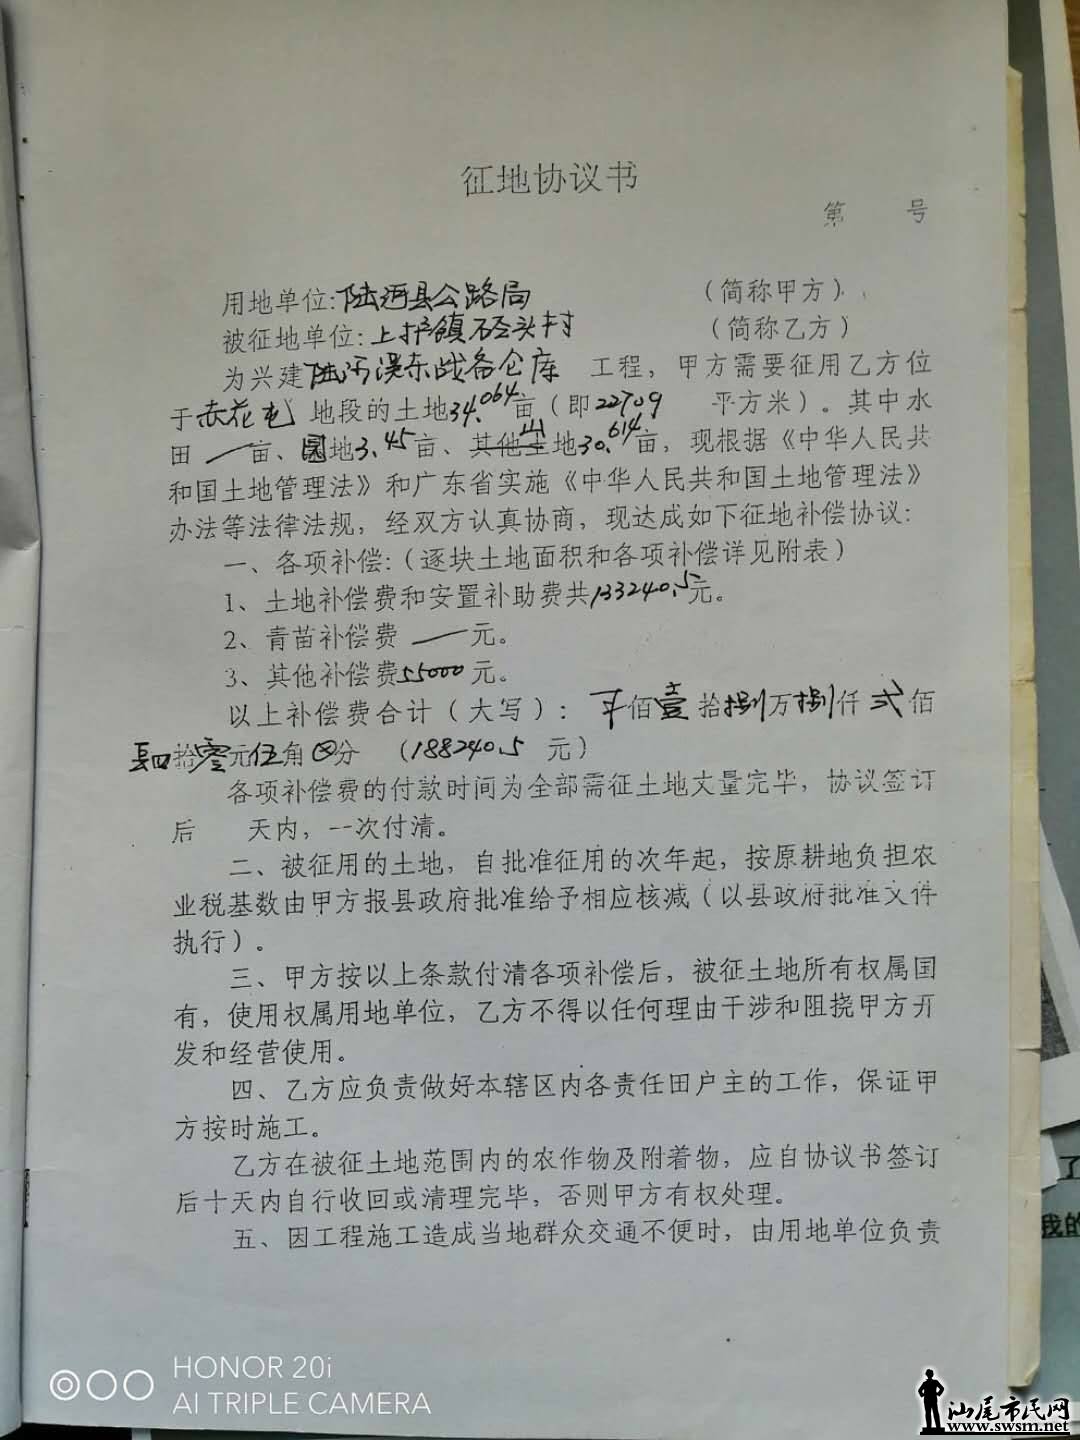 征地协议书
第 号
用地单位:陆河县公路局 (简称甲方)
被征地单位:上护镇硁头村 (简称乙方)
为兴建陆河滉东战备仓库 工程，甲方需要征用乙方位
于赤花屯地段的土地34.064亩(即22709 平方米)。其中水
田 一 亩、园地3.45亩、其他山地30.614亩，现根据《中华人民共
和国土地管理法》和广东省实施《中华人民共和国土地管理法》
办法等法律法规，经双方认真协商，现达成如下征地补偿协议:
一、各项补偿:(逐块土地面积和各项补偿详见附表)
1、土地补偿费和安置补助费共133240.5元。
2、青苗补偿费 一 元。
3、其他补偿费55000元。
以上补偿费合计(大写): 佰壹拾捌万捌仟贰佰
肆拾零元伍角 分 (188240.5 元)
各项补偿费的付款时间为全部需征土地丈量完毕，协议签订
后 天内，一次付清。
二、被征用的土地，自批准征用的次年起，按原耕地负担农
业税基数由甲方报县政府批准给予相应核减(以县政府批准文件
执行)。
三、甲方按以上条款付清各项补偿后，被征土地所有权属国
有，使用权属用地单位，乙方不得以任何理由干涉和阻挠甲方开
发和经营使用。
四、乙方应负责做好本辖区内各责任田户主的工作，保证甲
方按时施工。
乙方在被征土地范围内的农作物及附着物，应自协议书签订
后十天内自行收回或清理完毕，否则甲方有权处理。
五、因工程施工造成当地群众交通不便时，由用地单位负责
了
我的
HONOR 20i
AI TRIPLE CAMERA
汕尾市民网
www.swsm.net